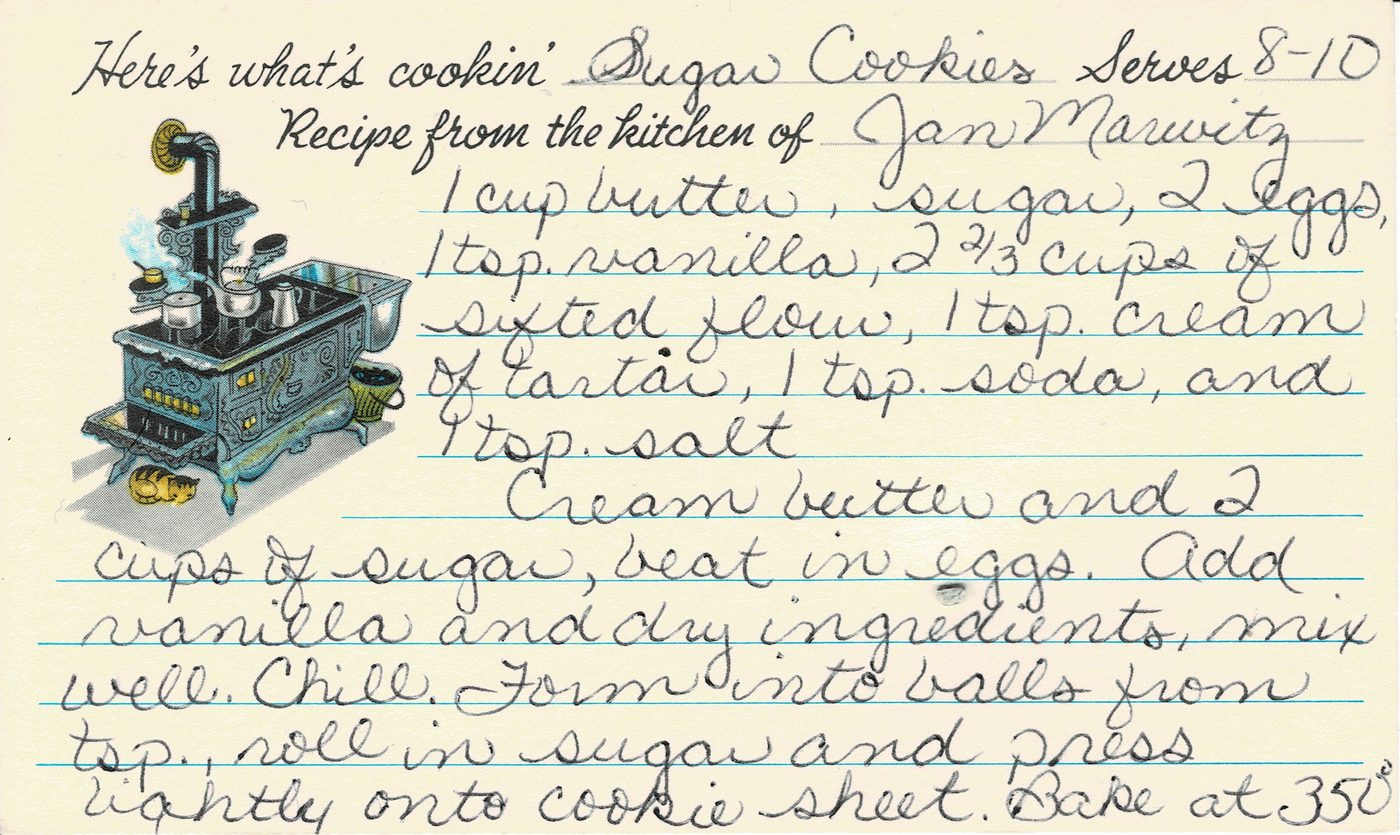 Here's what's cookin' Sugar Cookies Serves 8-10
Recipe from the kitchen of Jan Marwitz
1 cup butter, sugar, 2 eggs,
1 tsp. vanilla, 2 2/3 cups of
sifted flour, 1 tsp. cream
of tartar, 1 tsp. soda, and
1 tsp. salt
Cream butter and 2
cups of sugar, beat in eggs. Add
vanilla and dry ingredients, mix
well. Chill. Form into balls from
tsp., roll in sugar and press
lightly onto cookie sheet. Bake at 350°